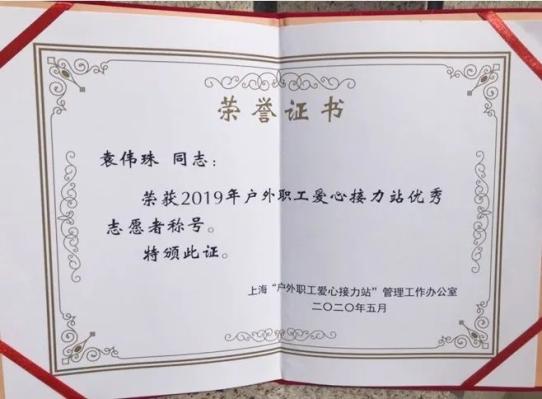 荣誉证书
袁伟珠 同志：
荣获2019年户外职工爱心接力站优秀
志愿者称号。
特颁此证。
上海“户外职工爱心接力站”管理工作办公室
二〇二〇年五月